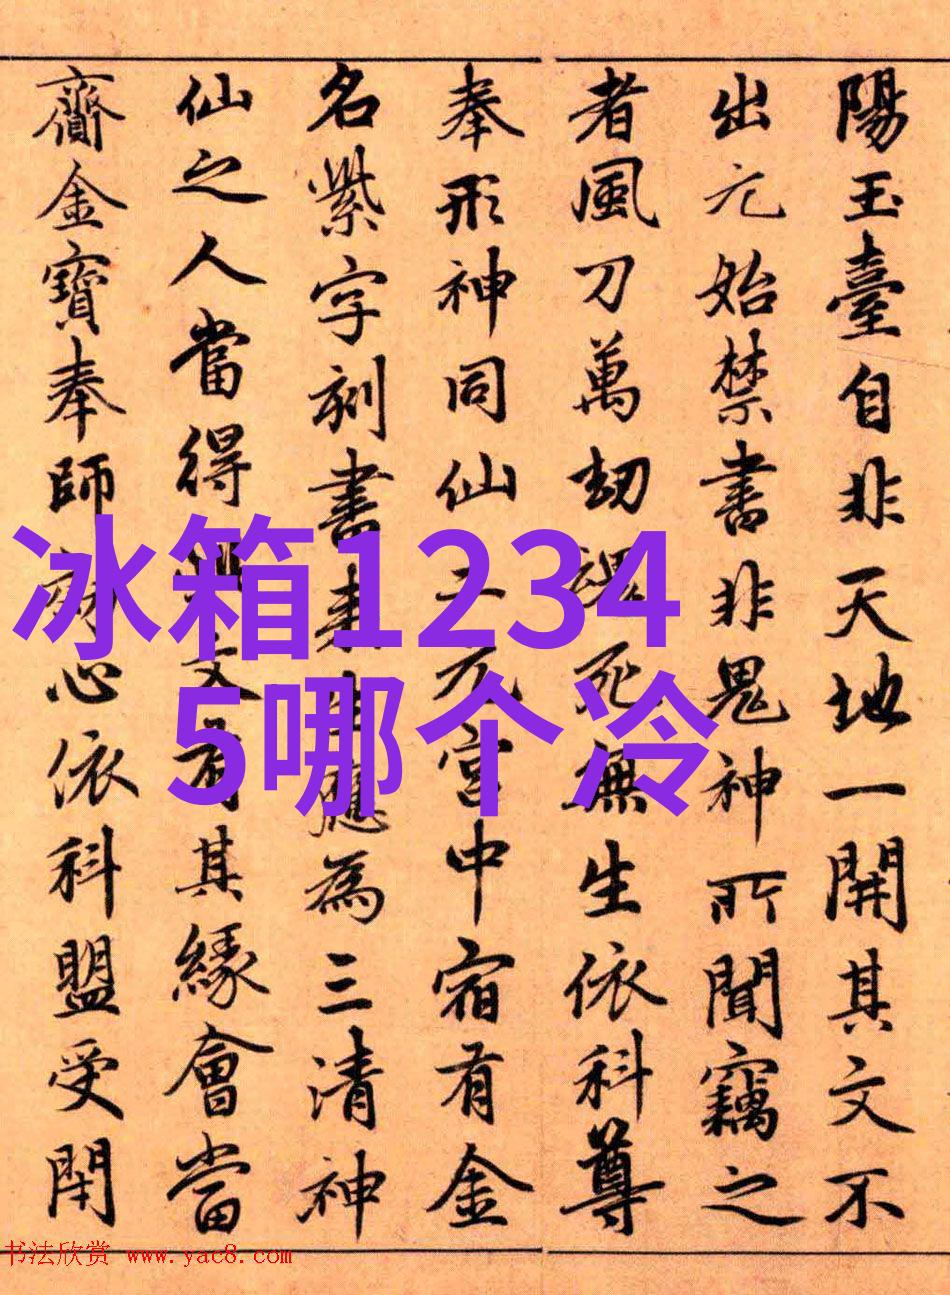 陽玉臺自非天地一開其文不
出元始禁書非鬼神所聞竊之
者風刀萬劫魂死無生依科尊
奉形神同仙上元宮中宿有金
名紫字刻書來生應為三清神
仙之人當得此文有其緣會當
齎金寶奉師 心依科盟受閇
冰箱1234
5哪个冷
书法欣赏 www.yac8.com